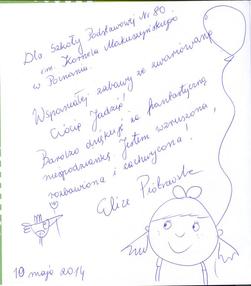 Dla Szkoły Podstawowej Nr 80
im. Kornela Makuszyńskiego
w Poznaniu.
Wspaniałej zabawy ze zwariowaną
Ciocią Jadzią!
Bardzo dziękuję za fantastyczną
niespodziankę. Jestem wzruszona,
rozbawiona i zachwycona!
Eliza Piotrowska
10 maja 2014